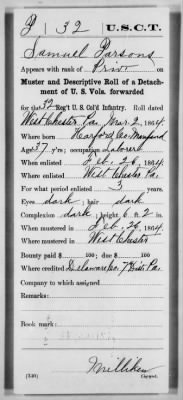 P | 32 | U.S.C.T.
Samuel Parsons
Appears with rank of Priv on
Muster and Descriptive Roll of a Detach-
ment of U. S. Vols. forwarded
for the 32 Reg't U. S. Col'd Infantry. Roll dated
West Chester Pa. Mar 2, 1864.
Where born Harford Co. Maryland
Age 37 y'rs; occupation Laborer
When enlisted Feb. 26, 1864.
Where enlisted West Chester Pa.
For what period enlisted 3 years.
Eyes dark; hair dark
Complexion dark; height 6 ft. 2 in.
When mustered in Feb. 26, 1864.
Where mustered in West Chester
Bounty paid $ 100; due $ 100
Where credited Delaware Co. 7 Dist. Pa.
Company to which assigned
Remarks:
Book mark:
Milliken
(340) Copyist.